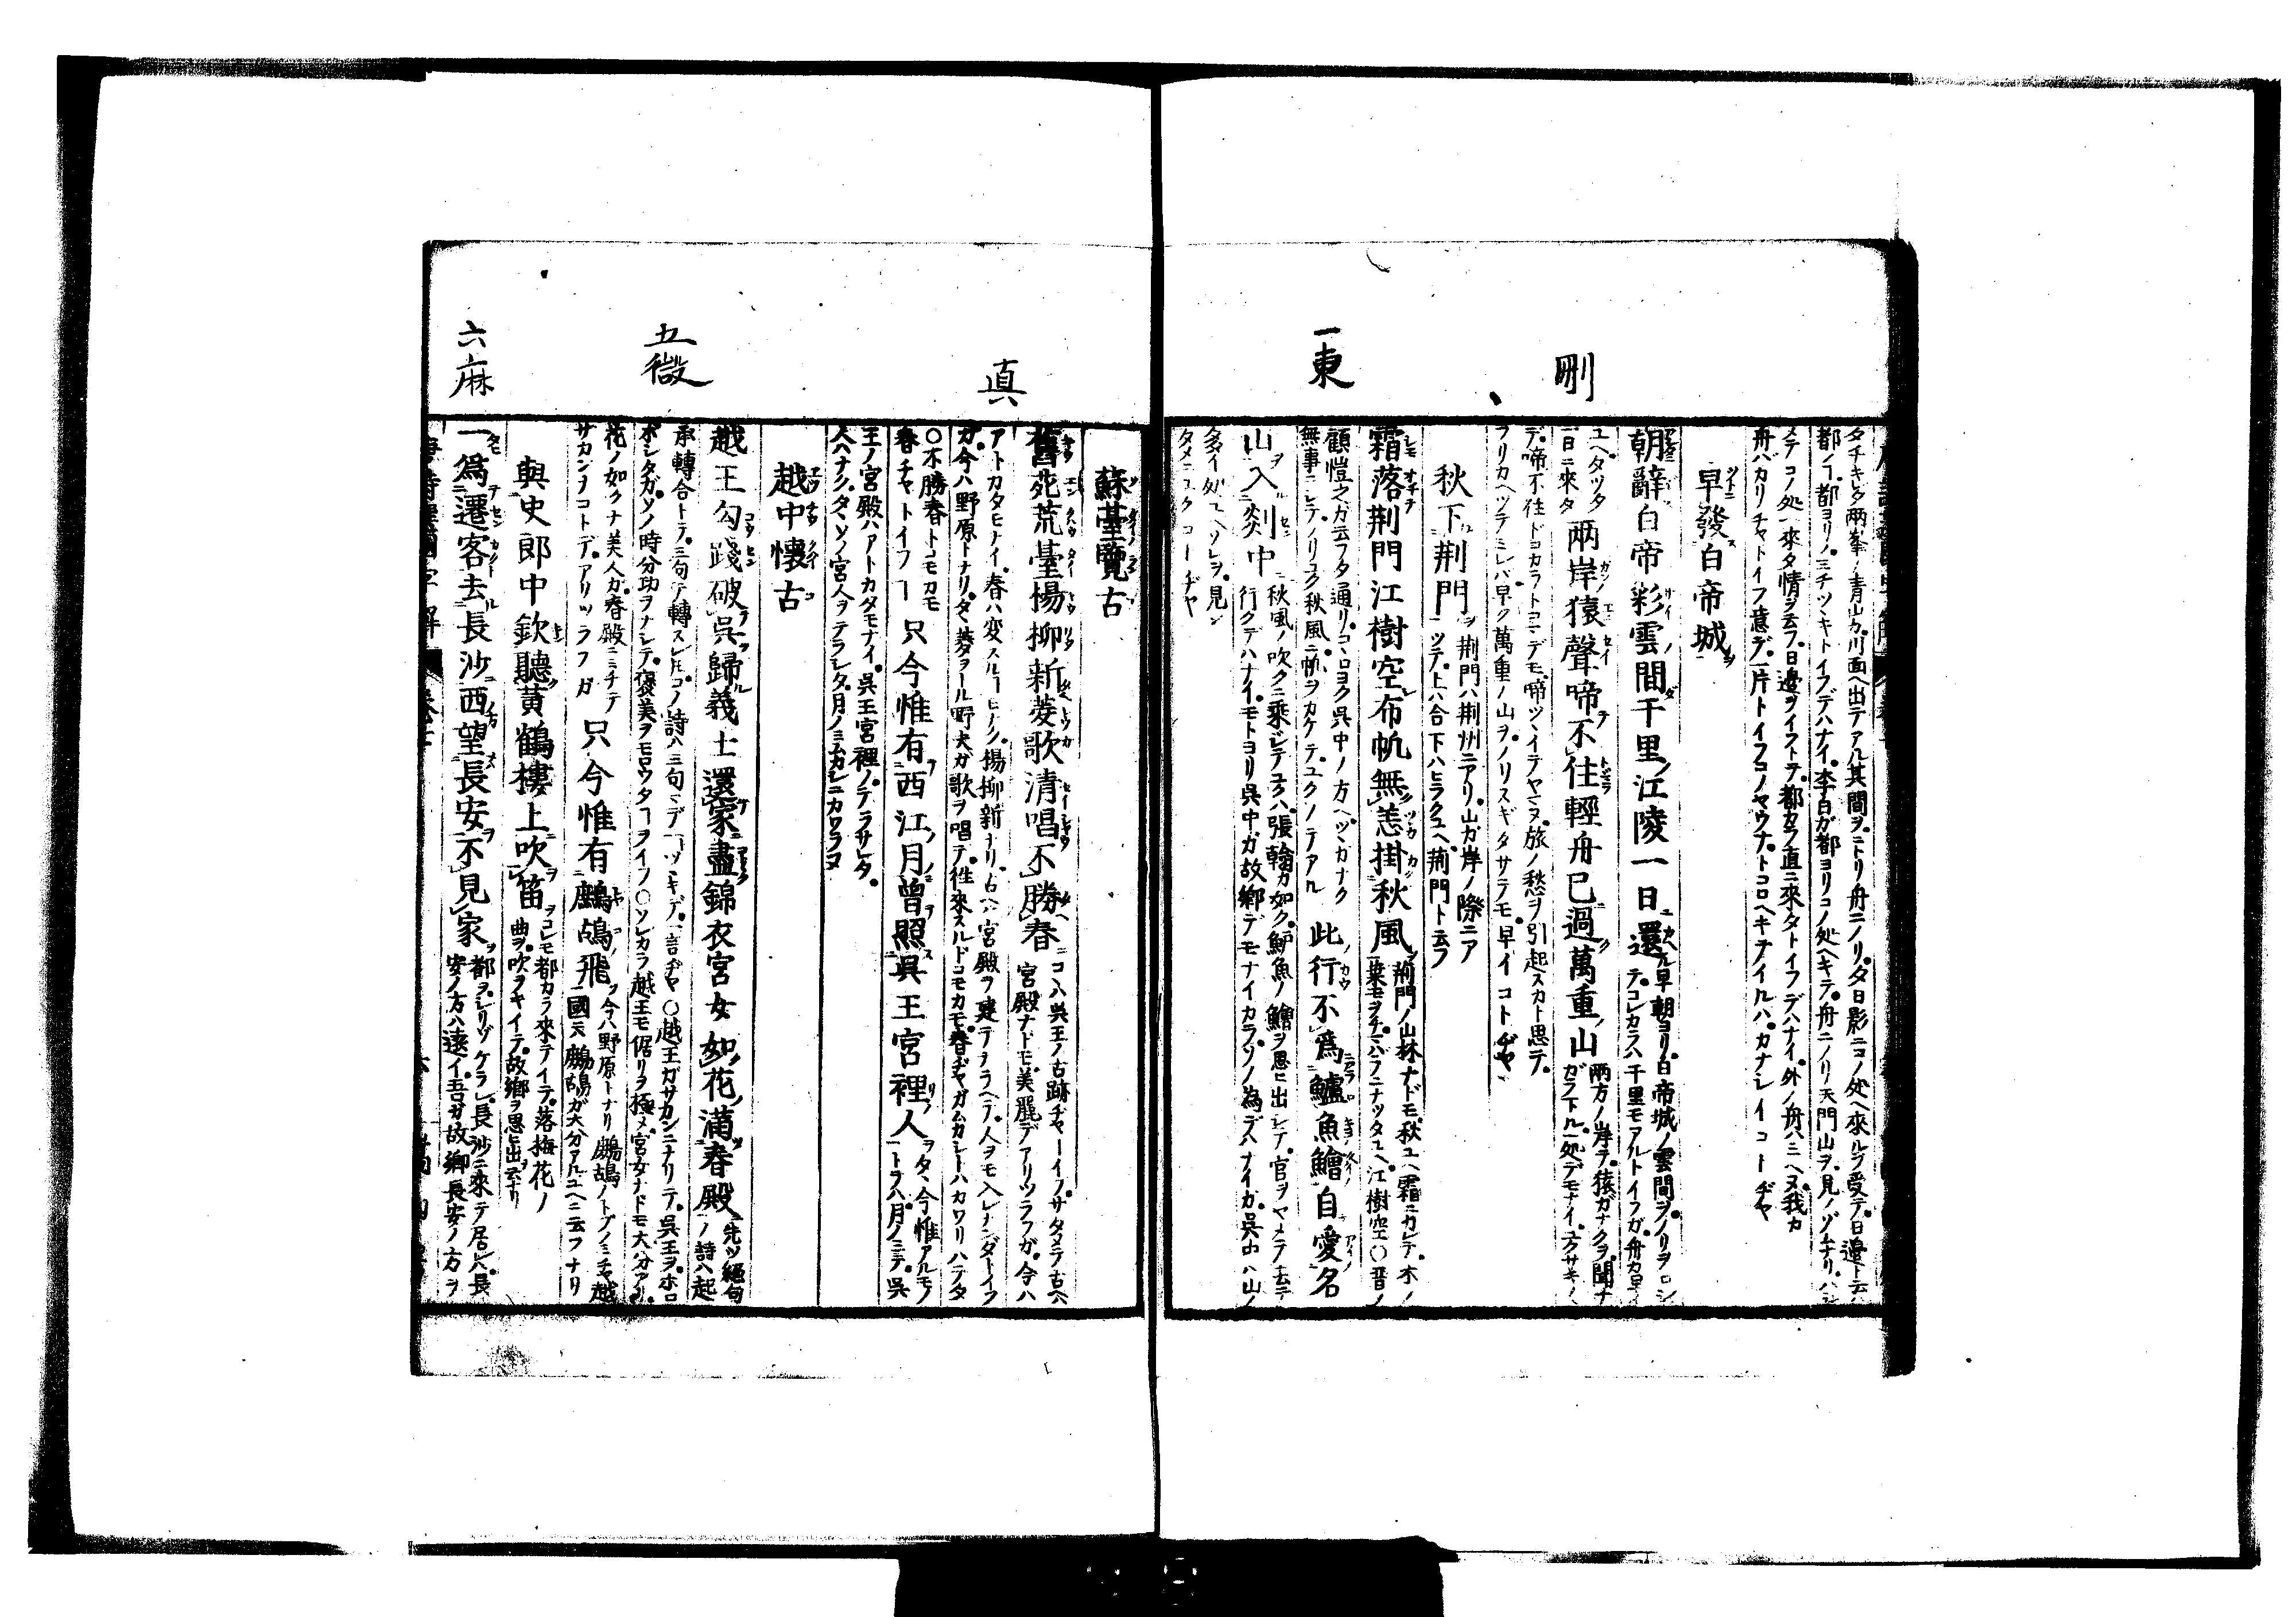 刪
一東
タチキレタ両峯ノ青山カ川面ヘ出テアル其間ヲニトリ舟ニノリ夕日影ニコノ処ヘ來ルヲ受テ日邊ト云
都ノコ都ヨリノミチツヽキトイフデハナイ李白ガ都ヨリコノ処ヘキテ舟ニノリ天門山ヲ見ノゾムナリ
メテコノ処ヘ來タ情ヲ云フ日邊ヲイフトテ都カラ直ニ來タトイフデハナイ外ノ舟ハミヘヌ我カ
舟バカリヂヤトイフ意デ一片トイフコノヤウナトコロヘキテイルハカナシイコトヂヤ
早發白帝城
朝辭白帝彩雲間千里江陵一日還 早朝ヨリ白帝城ノ雲間ヲノリヲロシ
テコレカラハ千里モアルトイフガ舟カ早イ
ユヘタツタ
一日ニ來タ 兩岸猿聲啼不住輕舟已過萬重山 兩方ノ岸デ猿ガナクヲ聞ナ
ガラ下ル一処デモナイユクサキ〳〵
デ啼不住ドコカラトコマデモ啼ツヾイテヤマヌ旅ノ愁ヲ引起スカト思テ
フリカヘツテミレバ早ク萬重ノ山ヲノリスギタサテモ早イコトヂヤ
秋下荆門 荆門ハ荆州ニアリ山ガ岸ノ際ニア
ツテ上ハ合下ハヒラクユヘ荆門ト云フ
霜落荆門江樹空布帆無恙掛秋風 荆門ノ山林ナドモ秋ユヘ霜ニカレテ木ノ
葉モヲチバラニナツタユヘ江樹空○晋ノ
顧愷之ガ云フタ通リコヽロヨク呉中ノ方ヘツヽガナク
無事ニシテノリユク秋風ニ帆ヲカケテユクノテアル 此行不爲鱸魚鱠自愛名
山入剡中 秋風ノ吹クニ乗ジテユクハ張翰カ如ク鱸魚ノ鱠ヲ思ヒ出シテ官ヲヤメテ去テ
行クデハナイモトヨリ呉中ガ故郷デモナイカラソノ為デハナイガ呉中ハ山ノ
多イ処ユヘソレヲ見ン
タメニユクコトヂヤ
真
五微
六麻
蘇臺覽古
舊苑荒臺楊柳新菱歌清唱不勝春 コヽハ呉王ノ古跡ヂヤトイフサダメテ古ヘハ
宮殿ナドモ美麗デアリツラフガ今ハ
アトカタモナイ春ハ変スルコトモナク楊柳新ナリ古ヘハ宮殿ヲ建テナラヘテ人ヲモ入レナンダトイフ
ガ今ハ野原トナリタヾ菱ヲトル野夫ガ歌ヲ唱テ往來スルドコモカモ春ヂヤガムカシトハカワリハテタ
○不勝春トコモカモ
春チヤトイフコト 只今惟有西江月曾照呉王宮裡人 タヾ今惟アルモノ
トテハ月ノミテ呉
王ノ宮殿ハアトカタモナイ呉王宮裡ノテラサレタ
人ハナクタヾソノ宮人ヲテラシタ月ノミムカシニカワラヌ
越中懷古
越王勾踐破呉歸義士還家盡錦衣宮女如花滿春殿 先ツ絶句
ノ詩ハ起
承轉合トテ三句テ轉スレ𪜈コノ詩ハ三句マデ一ツヾキデ一言ヂヤ○越王ガサカンニナリテ呉王ヲホロ
ボシタガソノ時分功ヲナシテ褒美ヲモロウタコトヲイフ○ソレカラ越王モ倨リヲ極メ宮女ナドモ大分アリ
花ノ如クナ美人ガ春殿ニミチテ
サカンナコトデアリツラフガ 只今惟有鷓鴣飛 今ハ野原トナリ鷓鴣ノトブノミチヤ越
國ニハ鷓鴣ガ大分アルユヘニ云フナリ
與史郎中欽聽黄鶴樓上吹笛 コレモ都カラ來テイテ落梅花ノ
曲ヲ吹ヲキイテ故郷ヲ思ヒ出云ナリ
一爲遷客去長沙西望長安不見家 都ヲシリゾケラレ長沙ニ來テ居レバ長
安ノ方ハ遠イ吾ガ故郷長安ノ方ヲ
唐詩選國字解